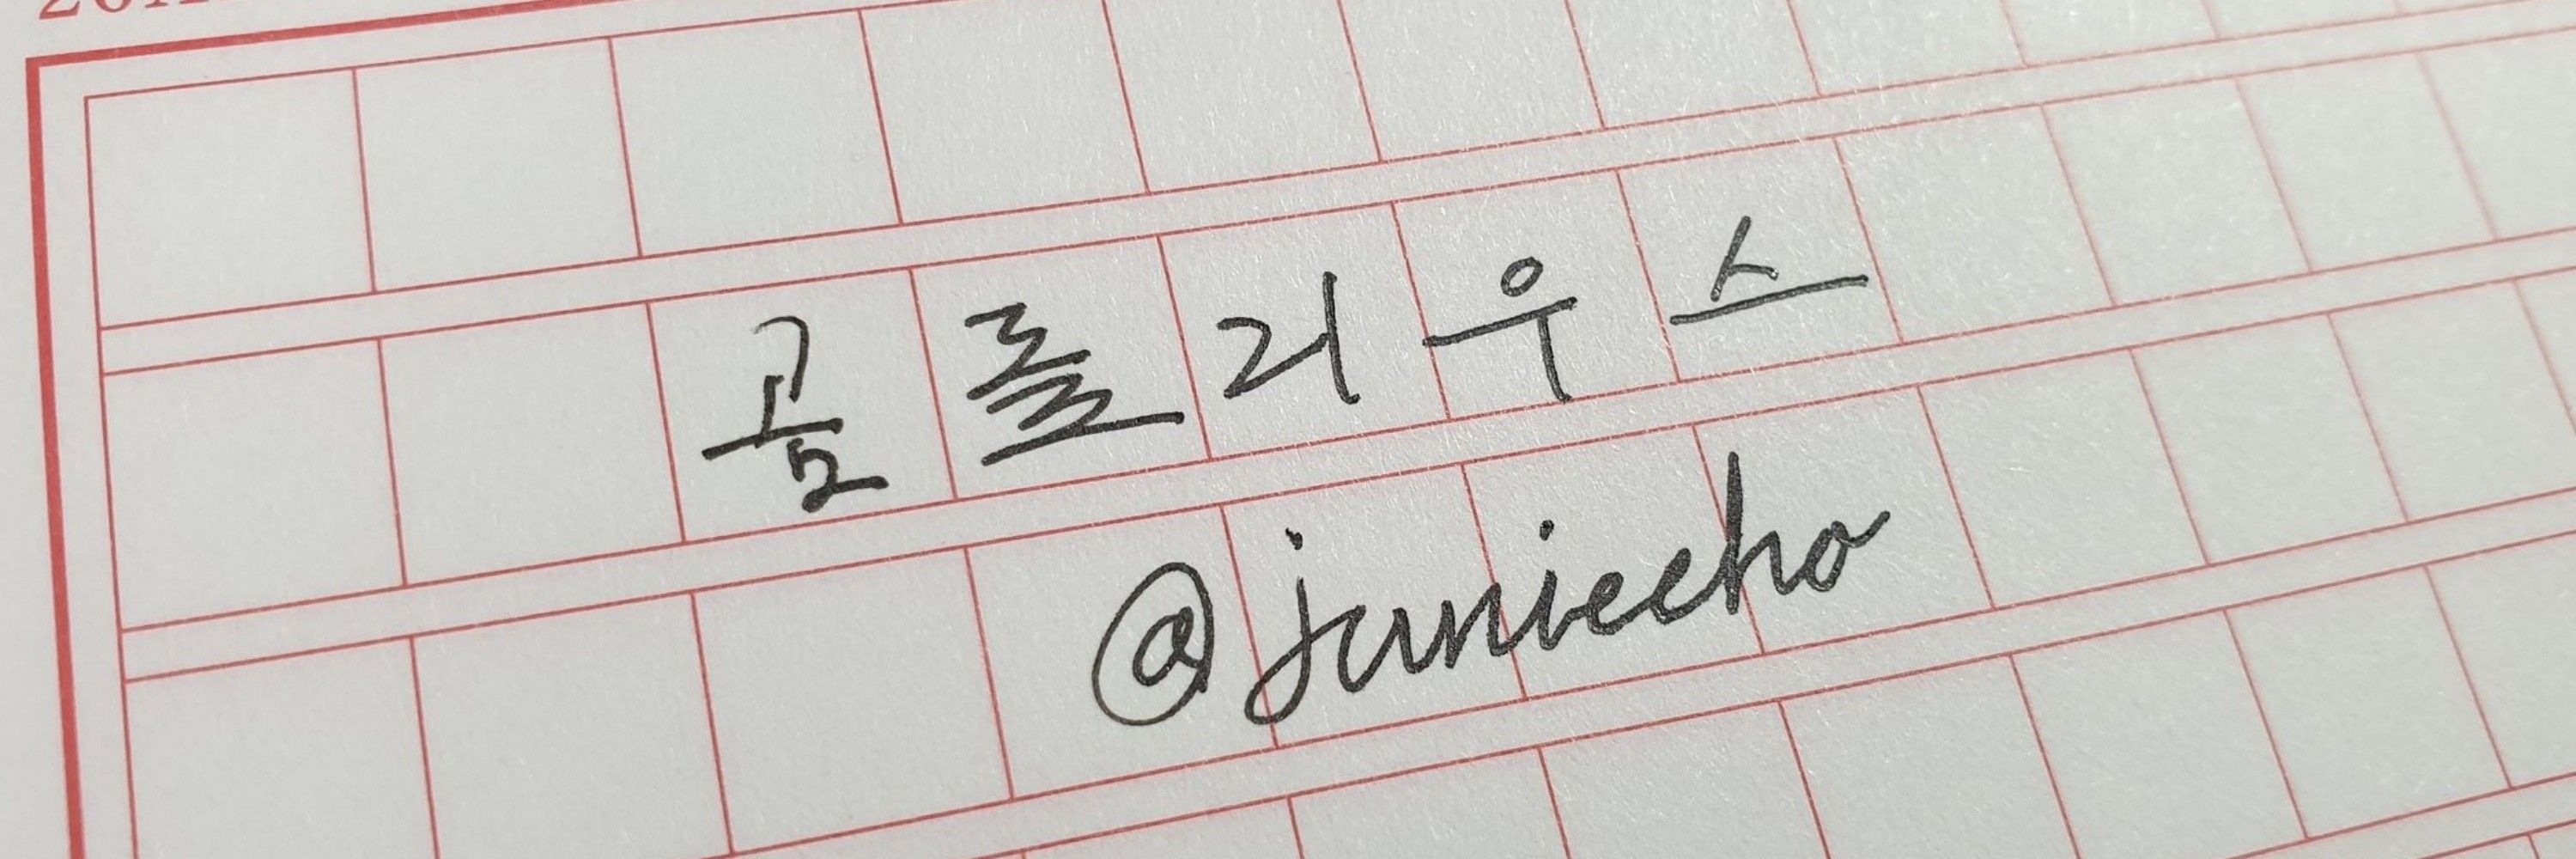 곰돌리우스
@juniecho